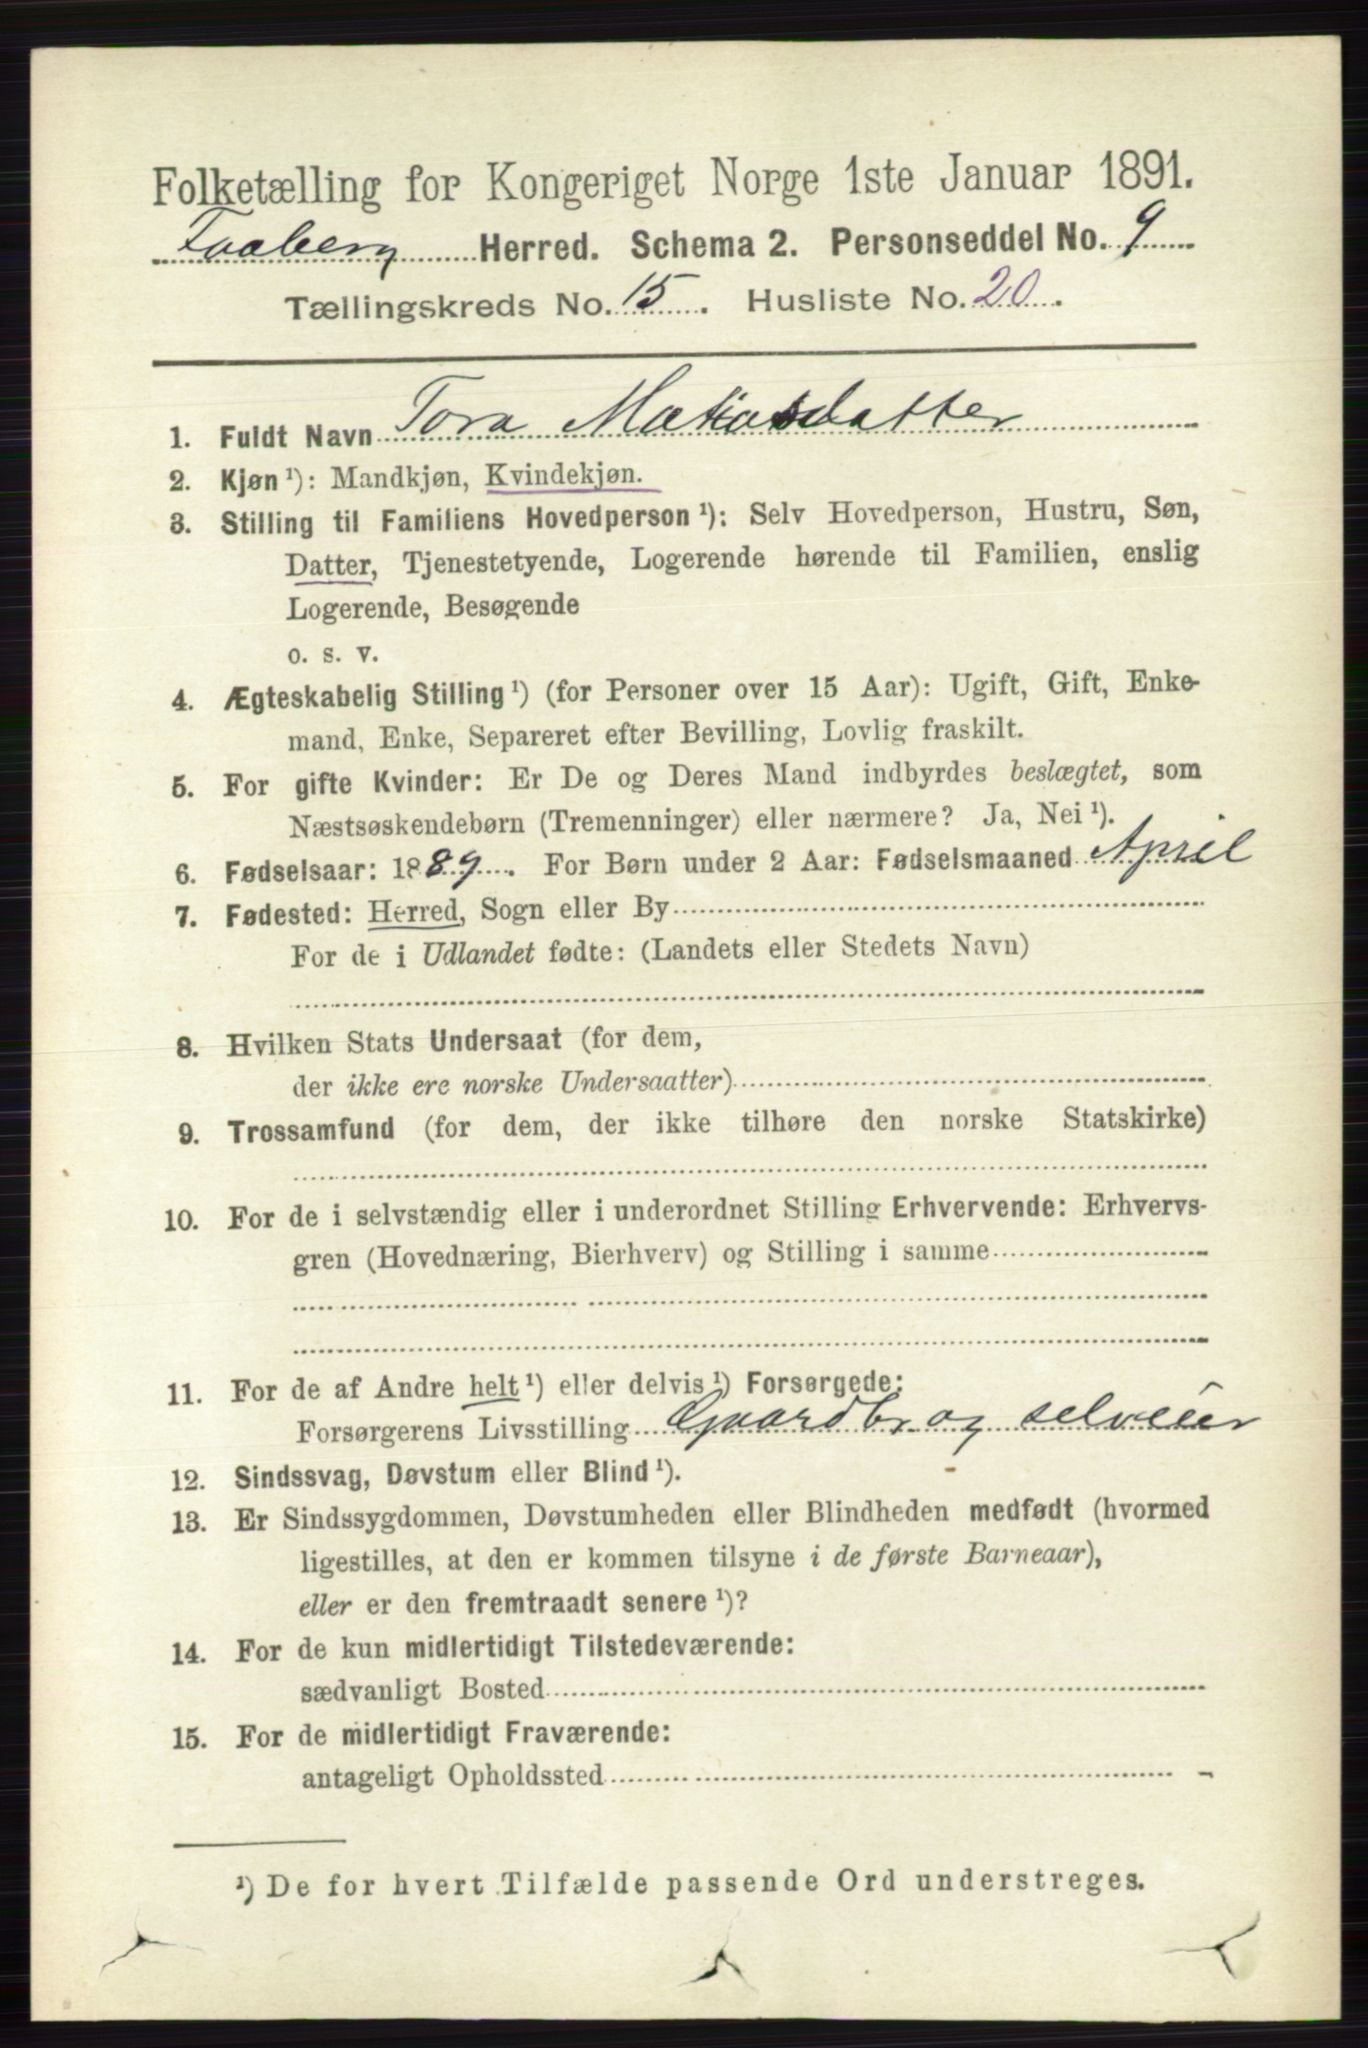 Folketælling for Kongeriget Norge 1ste Januar 1891.
Faaberg Herred. Schema 2. Personseddel No. 9
Tællingskreds No. 15. Husliste No. 20.
1. Fuldt Navn Tora Matiasdatter
2. Kjøn ¹): Mandkjøn, Kvindekjøn.
3. Stilling til Familiens Hovedperson ¹): Selv Hovedperson, Hustru, Søn,
Datter, Tjenestetyende, Logerende hørende til Familien, enslig
Logerende, Besøgende
o. s. v.
4. Ægteskabelig Stilling ¹) (for Personer over 15 Aar): Ugift, Gift, Enke-
mand, Enke, Separeret efter Bevilling, Lovlig fraskilt.
5. For gifte Kvinder: Er De og Deres Mand indbyrdes beslægtet, som
Næstsøskendebørn (Tremenninger) eller nærmere? Ja, Nei ¹).
6. Fødselsaar: 1889. For Børn under 2 Aar: Fødselsmaaned April
7. Fødested: Herred, Sogn eller By
For de i Udlandet fødte: (Landets eller Stedets Navn)
8. Hvilken Stats Undersaat (for dem,
der ikke ere norske Undersaatter)
9. Trossamfund (for dem, der ikke tilhøre den norske Statskirke)
10. For de i selvstændig eller i underordnet Stilling Erhvervende: Erhvervs-
gren (Hovednæring, Bierhverv) og Stilling i samme
11. For de af Andre helt ¹) eller delvis ¹) Forsørgede:
Forsørgerens Livsstilling Gaardbr og selveier
12. Sindssvag, Døvstum eller Blind ¹).
13. Er Sindssygdommen, Døvstumheden eller Blindheden medfødt (hvormed
ligestilles, at den er kommen tilsyne i de første Barneaar),
eller er den fremtraadt senere ¹)?
14. For de kun midlertidigt Tilstedeværende:
sædvanligt Bosted
15. For de midlertidigt Fraværende:
antageligt Opholdssted
¹) De for hvert Tilfælde passende Ord understreges.